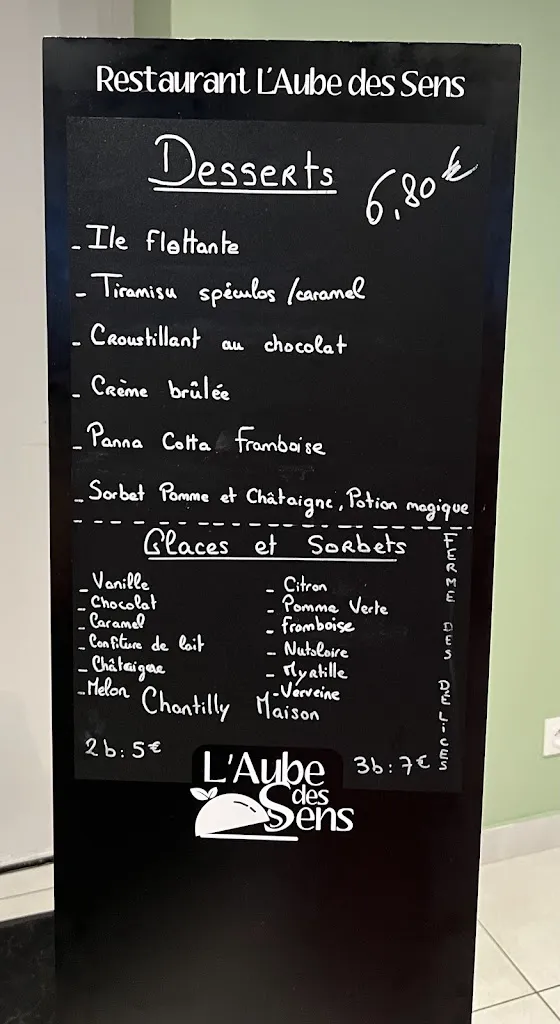 Restaurant L'Aube des Sens
Desserts
6,80€
- Ile flottante
- Tiramisu spéculos /caramel
- Croustillant au chocolat
- Crème brûlée
- Panna Cotta framboise
- Sorbet Pomme et Châtaigne, Potion magique
Glaces et Sorbets
- Vanille
- Chocolat
- Caramel
- Confiture de lait
- Châtaigne
- Melon
- Citron
- Pomme Verte
- Framboise
- Nutoloire
- Myrtille
- Verveine
Chantilly Maison
FERME DES DÉLICES
2b: 5€
3b: 7€
L'Aube
des
Sens